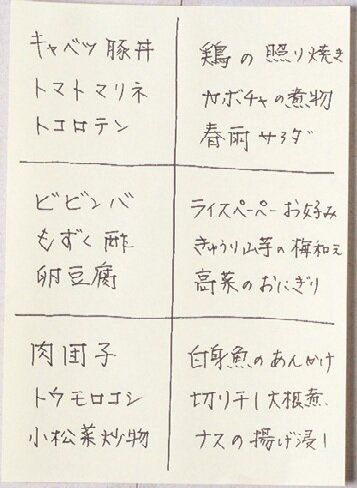 キャベツ豚丼
トマトマリネ
トコロテン
鶏の照り焼き
カボチャの煮物
春雨サラダ
ビビンバ
もずく酢
卵豆腐
ライスペーパーお好み
きゅうり山芋の梅和え
高菜のおにぎり
肉団子
トウモロコシ
小松菜炒物
白身魚のあんかけ
切り干し大根煮
ナスの揚げ浸し